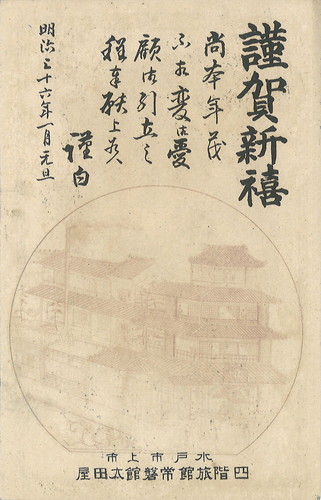 謹賀新禧
尚本年茂
不相変御愛
顧御引立之
程奉願上候
謹白
明治三十六年一月元旦
水戸市上市
四階旅館常磐館太田屋